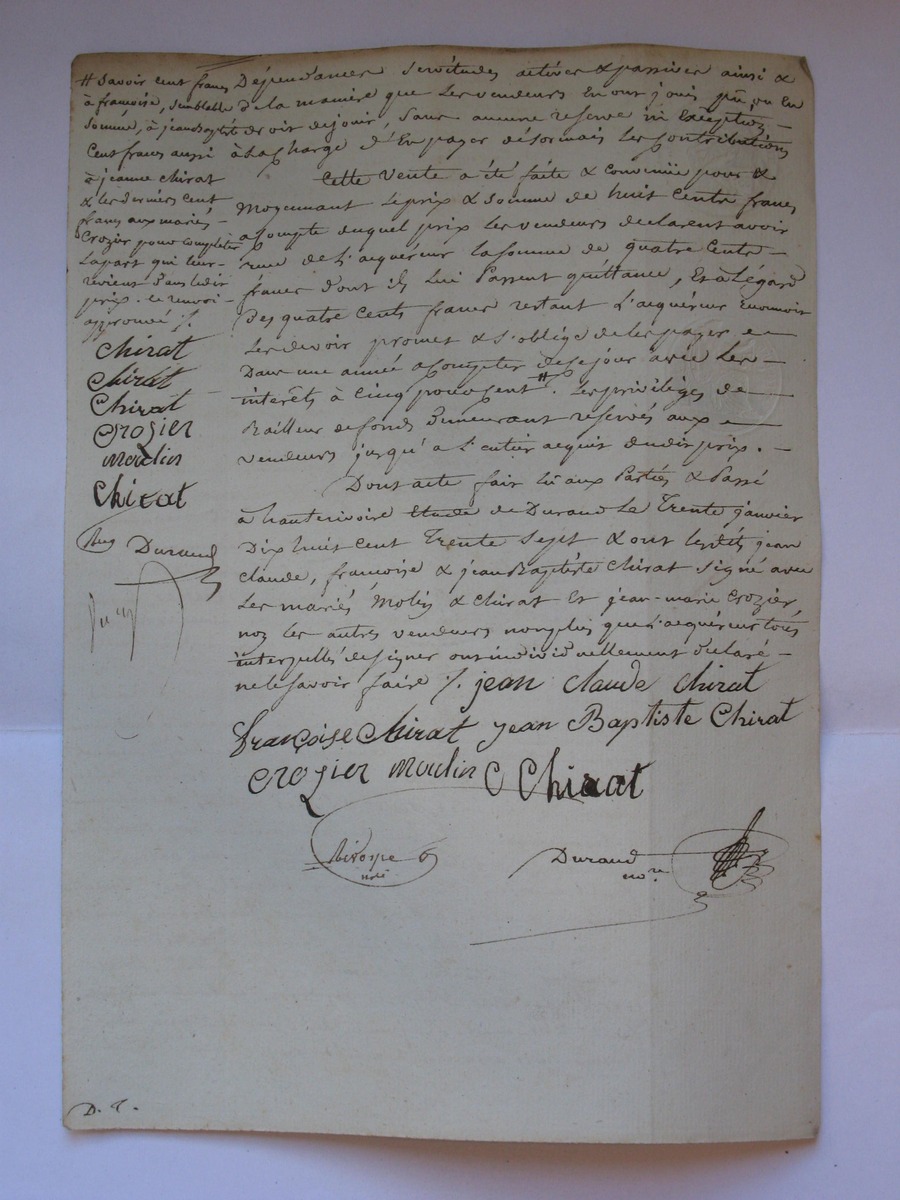 # Savoir cent francs
à françoise, semblable
somme, à jean Baptiste
Cent francs aussi
à jeanne Chirat
& les derniers cent
francs aux mariés
Crozier pour compléter
la part qui leur
revient dans ledit
prix. ce renvoi
approuvé /.
Chirat
Chirat
Chirat
Crozier
moulin
Chirat
Durand
Dépendances servitudes actives & passives ainsi &
de la manière que les vendeurs en ont joui pû ou en
droit de jouir, sans aucune reserve ni exception
à la charge d'en payer désormais les contributions
Cette vente a été faite & convenue pour &
Moyennant le prix & somme de huit Cents francs
acompte duquel prix les vendeurs declarent avoir
reçu de l'acquéreur la somme de quatre Cents
francs dont ils lui Passent quittance, Et à l'égard
Des quatre Cents francs restant l'acquéreur
les devoir promet & s'oblige de les payer
Dans une année à Compter de ce jour avec les
interêts à Cinq pour cent #. Les privilèges de
Bailleur de fonds demeurant reservés aux
vendeurs jusqu'à l'entier acquit dudit prix.
Dont acte fait lû aux Parties & Passé
à hauterivoire Etude de Durand Le Trente janvier
Dix huit cent Trente Sept & ont lesdits jean
Claude, françoise & jean Baptiste Chirat Signé avec
Les mariés Molin & Chirat Et jean-marie Crozier,
non les autres vendeurs non plus que l'acquéreur tous
interpellés de signer ont individuellement déclaré
ne le savoir faire /. jean claude chirat
françoise Chirat jean Baptiste Chirat
Crozier moulin C Chirat
Durand
no.re
D. T.